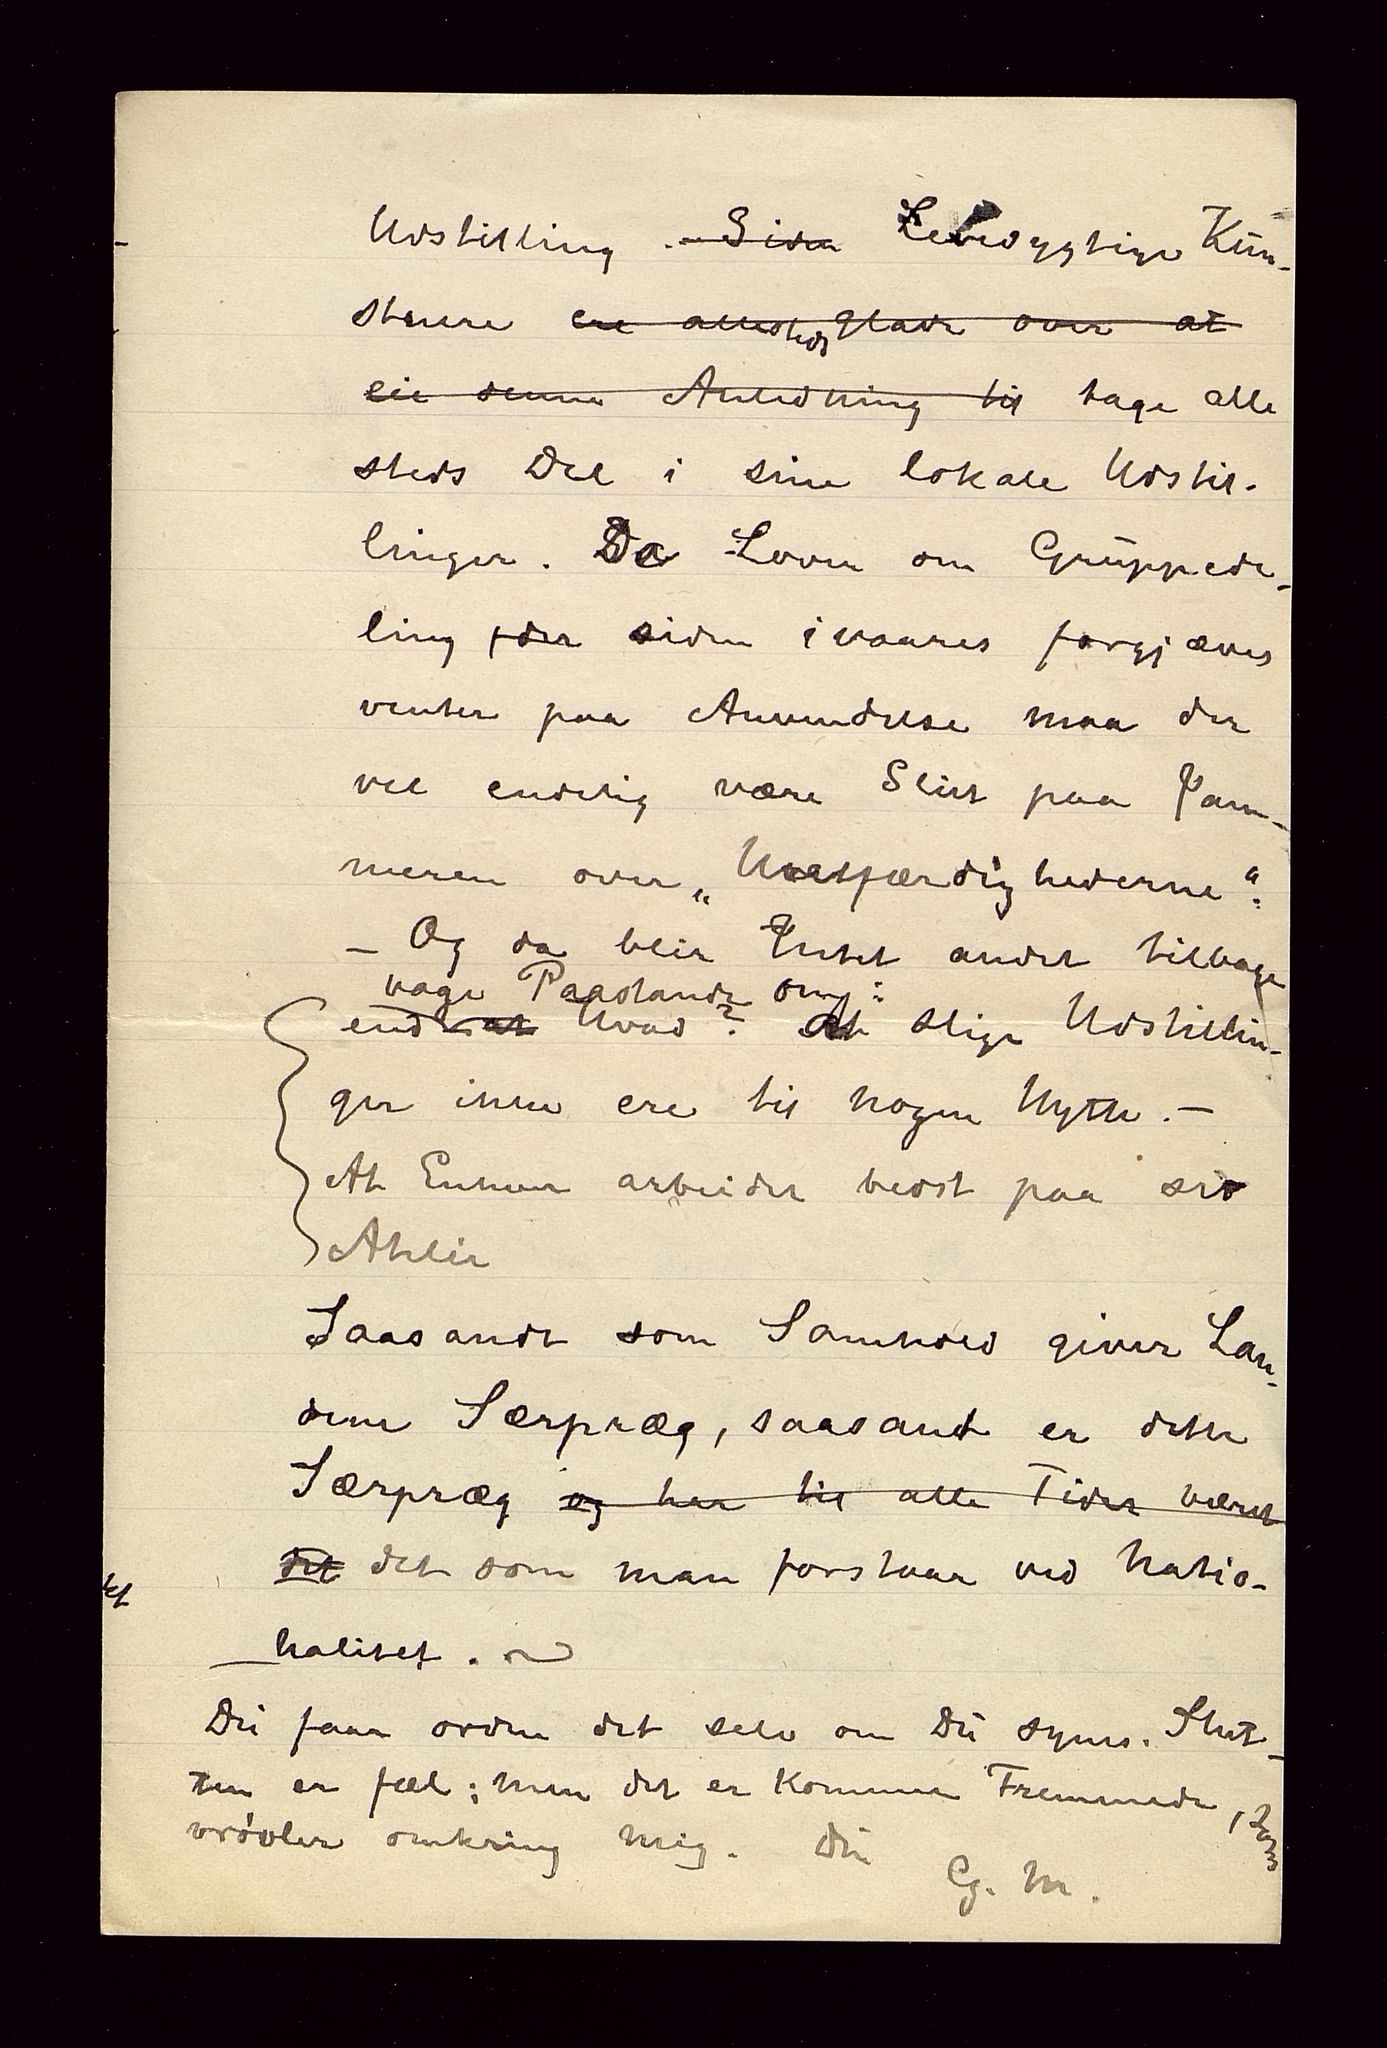 Udstilling. - Siden Levedygtige Kün-
stnere ere allesteds glade over at
eie denne Anledning til tage alle
steds Del i sine lokale Udstil-
linger. Da Loven om Grüppede-
ling der siden ivaares forgjæves
venter paa Anvendelse maa der
vel endelig være Slut paa Jam-
meren over „Uretfærdighederne“.
- Og da blir Intet andet tilbage
vage Paastande om:
end at Hvad? At slige Udstillin-
ger ikke ere til nogen Nytte. -
At Enhver arbeider bedst paa sit
Atelier
Saasandt som Samhold giver Lan-
dene Særpræg, saasandt er dette
Særpræg og har til alle Tider været
det det som man forstaar ved Natio-
nalitet.
Dü faar ordne det selv om Dü synes. Slut-
ten er fæl; men det er kommen Fremmede, som
vrøvler omkring mig. Din
Eg. M.
kt